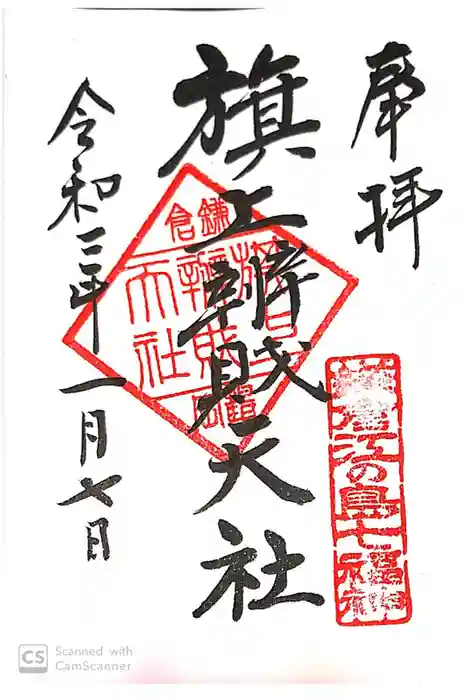 奉拝
鎌倉江の島七福神
旗上辨財天社
鎌倉
令和三年一月七日
CS Scanned with
CamScanner